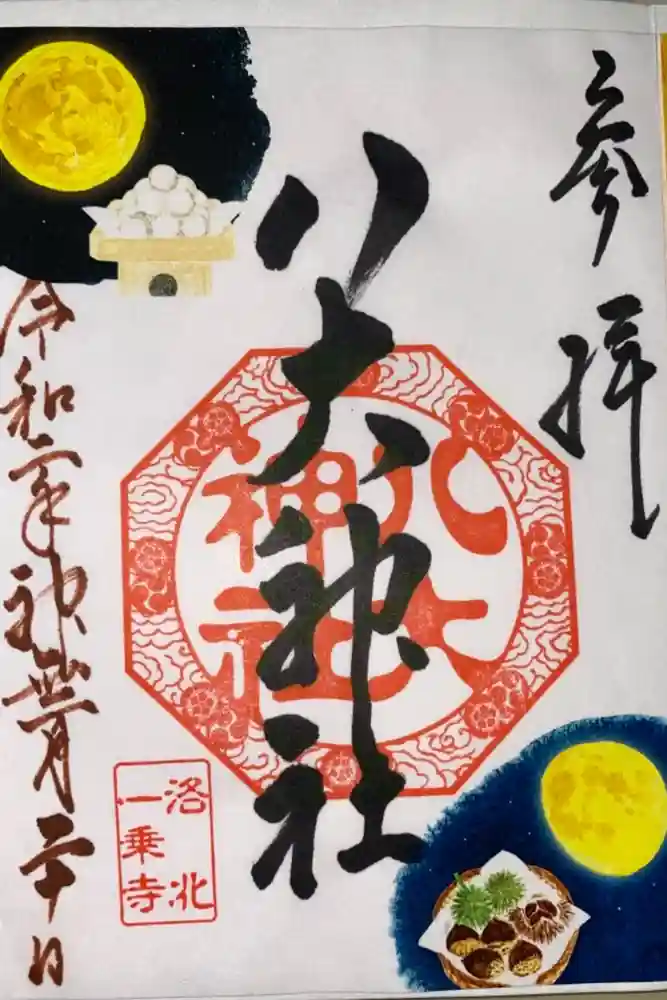 参拝
八大神社
八大
神社
洛北
一乗寺
令和六年神無月二十日